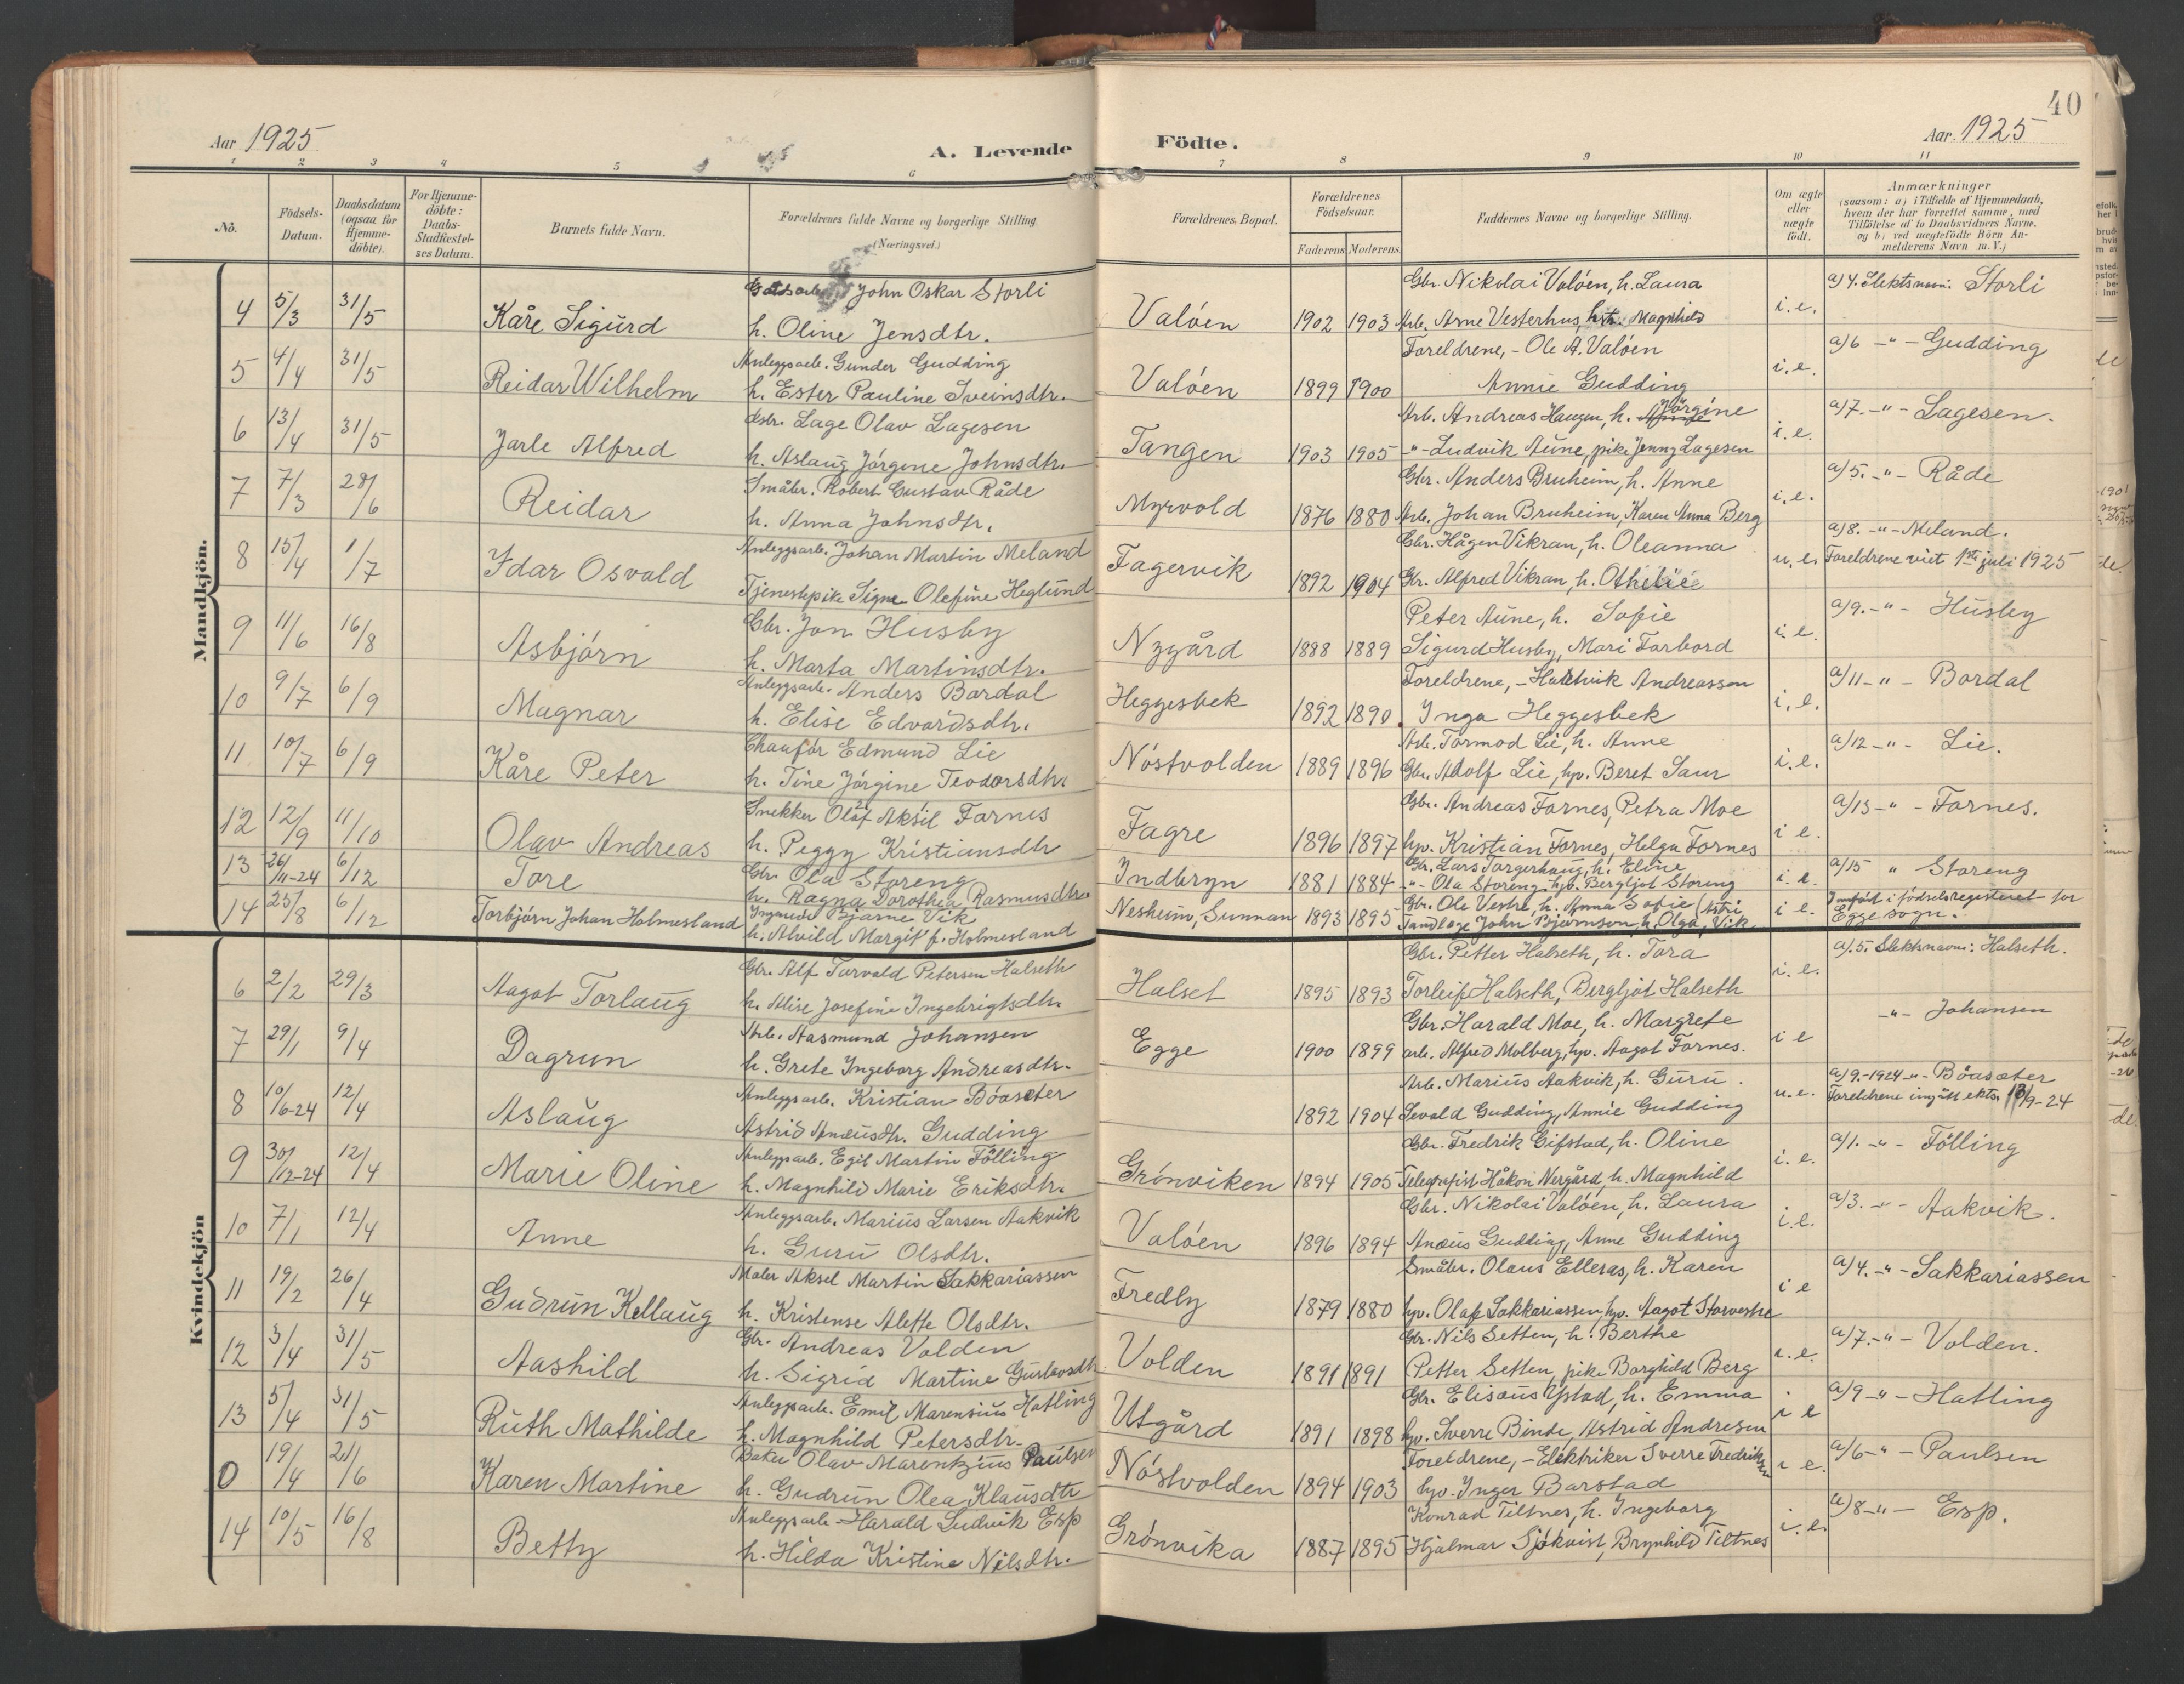 40
Aar 1925
A. Levende Födte.
Aar. 1925
1 2 3 4 5 6 7 8 9 10 11
No.
Födsels-Datum.
Daabsdatum (ogsaa for Hjemme-döbte).
For Hjemme-döbte: Daabs-Stadfæstel-ses Datum.
Barnets fulde Navn.
Forældrenes fulde Navne og borgerlige Stilling (Næringsvei.)
Forældrenes, Bopæl.
Forældrenes Födselsaar.
Faderens Moderens
Faddernes Navne og borgerlige Stilling.
Om ægte eller uægte födt.
Anmærkninger
(saasom: a) i Tilfælde af Hjemmedaab,
hvem der har forrettet samme, med
Tilföielse af to Daabsvidners Navne.
og b) ved uægtefödte Börn An-
melderens Navn m. V.)
Mandkjön.
4 5/3 31/5 Kåre Sigurd
John Oskar Storli
h. Oline Jensdtr.
Valöen 1902 1903
Gbr. Nikolai Valöen, h. Laura
Arb. Arne Vesterhus, Magnhild
i.e.
a) 4. Slektsnavn: Storli
5 4/4 31/5 Reidar Wilhelm
Anleggsarb. Gunder Gudding
h. Ester Pauline Sveinsdtr.
Valöen 1899 1900
Foreldrene, - Ole A. Valöen
Annie Gudding
i.e.
a) 6 -"- Gudding
6 13/4 31/5 Jarle Alfred
Gbr. Lage Olav Lagesen
h. Aslaug Jörgine Johnsdtr.
Tangen 1903 1905
Arb. Andreas Haugen, h. Jörgine
-"- Ludvik Aune, pike Jenny Lagesen
i.e.
a) 7. -"- Lagesen.
7 7/3 28/6 Reidar
Småbr. Robert Gustav Råde
h. Anna Johnsdtr.
Myrvold 1876 1880
Gbr. Anders Bruheim, h. Anne
Arb. Johan Bruheim, Karen Anna Berg
i.e.
a) 5. -"- Råde
8 15/4 1/7 Idar Osvald
Anleggsarb. Johan Martin Meland
Tjenestepike Signe Olefine Heglund
Fagervik 1892 1904
Gbr. Hågen Vikran, h. Oleanna
Gbr. Alfred Vikran, h. Othelie
u.e.
a) 8. -"- Meland.
Foreldrene viet 1ste juli 1925
9 11/6 16/8 Asbjörn
Gbr. Jon Husby
h. Marta Martinsdtr.
Nygård 1888 1889
Peter Aune, h. Sofie
Sigurd Husby, Mari Forbord
i.e.
a) 9. -"- Husby
10 9/7 6/9 Magnar
Anleggsarb. Anders Bardal
h. Elise Edvardsdtr.
Heggesbek 1892 1890
Foreldrene, - Hartvik Andreassen
Inga Heggesbek
i.e.
a) 11 -"- Bardal
11 10/7 6/9 Kåre Peter
Chauför Edmund Lie
h. Tine Jörgine Teodorsdtr.
Nöstvolden 1889 1896
Arb. Tormod Lie, h. Anne
Gbr. Adolf Lie, hp. Beret Saur
i.e.
a) 12 -"- Lie.
12 12/9 11/10 Olav Andreas
Snekker Olaf Aksil Fornes
h. Peggy Kristiansdtr
Fagre 1896 1897
Gbr. Andreas Fornes, Petra Moe
hp. Kristian Fornes, Helga Fornes
i e.
a) 13 -"- Fornes.
13 26/11-24 6/12 Tore
Gbr. Ola Storeng
h. Ragna Dorothea Rasmusdtr.
Indbryn 1881 1884
Gbr. Lars Torgerhaug, h. Eline
-"- Ola Storeng, hp. Bergljot Storeng
i e.
a) 15 " Storeng
14 23/8 6/12 Torbjörn Johan Holmesland
Bjarne Vik
h. Alvild Margit f. Holmesland
Nesheim, Sunnan 1893 1895
Gbr. Ole Vestre, h. Anna Sofie (Astri
Tandlæge John Bjørnson, h. Olga, Vik
i e.
Innført i födselsregisteret for
Egge sogn.
Kvindekjön
6 2/2 29/3 Aagot Torlaug
Gbr. Alf Torvald Petersen Halseth
h. Alise Josefine Ingebrigtsdtr.
Halset 1895 1893
Gbr. Petter Halseth, h. Tora
Torleif Halseth, Bergljot Halseth
i.e.
a) 5. Slektsnavn: Halseth.
7 29/1 9/4 Dagrun
Arb. Aasmund Johansen
h. Grete Ingeborg Andreasdtr.
Egge 1900 1899
Gbr. Harald Moe, h. Margrete
arb. Alfred Molberg, hp. Aagot Fornes.
i e
-"- Johansen
8 10/6-24 12/4 Aslaug
Anleggsarb. Kristian Böasæter
Astrid Anæusdtr. Gudding
1892 1904
Arb. Marius Aakvik, h. Guru.
Sevald Gudding, Annie Gudding
u.e.
a) 9.-1924 -"- Böasæter
Foreldrene inngått ektsk. 13/9-24
9 30/12-24 12/4 Marie Oline
Anleggsarb. Egil Martin Fölling
h. Magnhild Marie Eriksdtr.
Grönviken 1894 1905
Gbr. Fredrik Gifstad, h. Oline
Telegrafist Håkon Nergård, h. Magnhild
i. e.
a) 1. -"- Fölling
10 7/1 12/4 Anne
Anleggsarb. Marius Larsen Aakvik
h. Guru Olsdtr.
Valöen 1896 1894
Gbr. Nikolai Valöen, h. Laura
Anæus Gudding, Anne Gudding
i.e.
a) 3. -"- Aakvik.
11 19/2 26/4 Gudrun Kellaug
Maler Aksel Martin Sakkariassen
h. Kristense Alette Olsdtr.
Fredly 1879 1880
Småbr. Olaus Elleras, h. Karen
hp. Olaf Sakkariassen, hp. Aagot Storvestre
i e
a) 4. -"- Sakkariassen
12 3/4 31/5 Aashild
Gbr. Andreas Volden
h. Sigrid Martine Gustavsdtr
Volden 1891 1891
Gbr. Nils Setten, h. Berthe
Petter Setten, pike Borghild Berg
i.e.
a) 7. -"- Volden.
13 5/4 31/5 Ruth Mathilde
Anleggsarb. Emil Marensius Hatling
h. Magnhild Petersdtr.
Utgård 1891 1898
Gbr. Elisæus Ystad, h. Emma
hp. Sverre Binde, Astrid Andresen
i e
a) 9 -"- Hatling
0 19/4 21/6 Karen Martine
Baker Olav Marentzius Paulsen
h. Gudrun Olea Klausdtr
Nöstvolden 1894 1903
Foreldrene, - Elektriker Sverre Fredriksen
hp. Inger Barstad
i e.
a) 6 -"- Paulsen
14 10/5 16/8 Betty
Anleggsarb. Harald Ludvik Esp
h. Hilda Kristine Nilsdtr.
Grönvika 1887 1895
Konrad Tiltnes, h. Ingeborg
Hjalmar Sjökvist, Brynhild Tiltnes
i.e.
a) 8 -"- Esp.